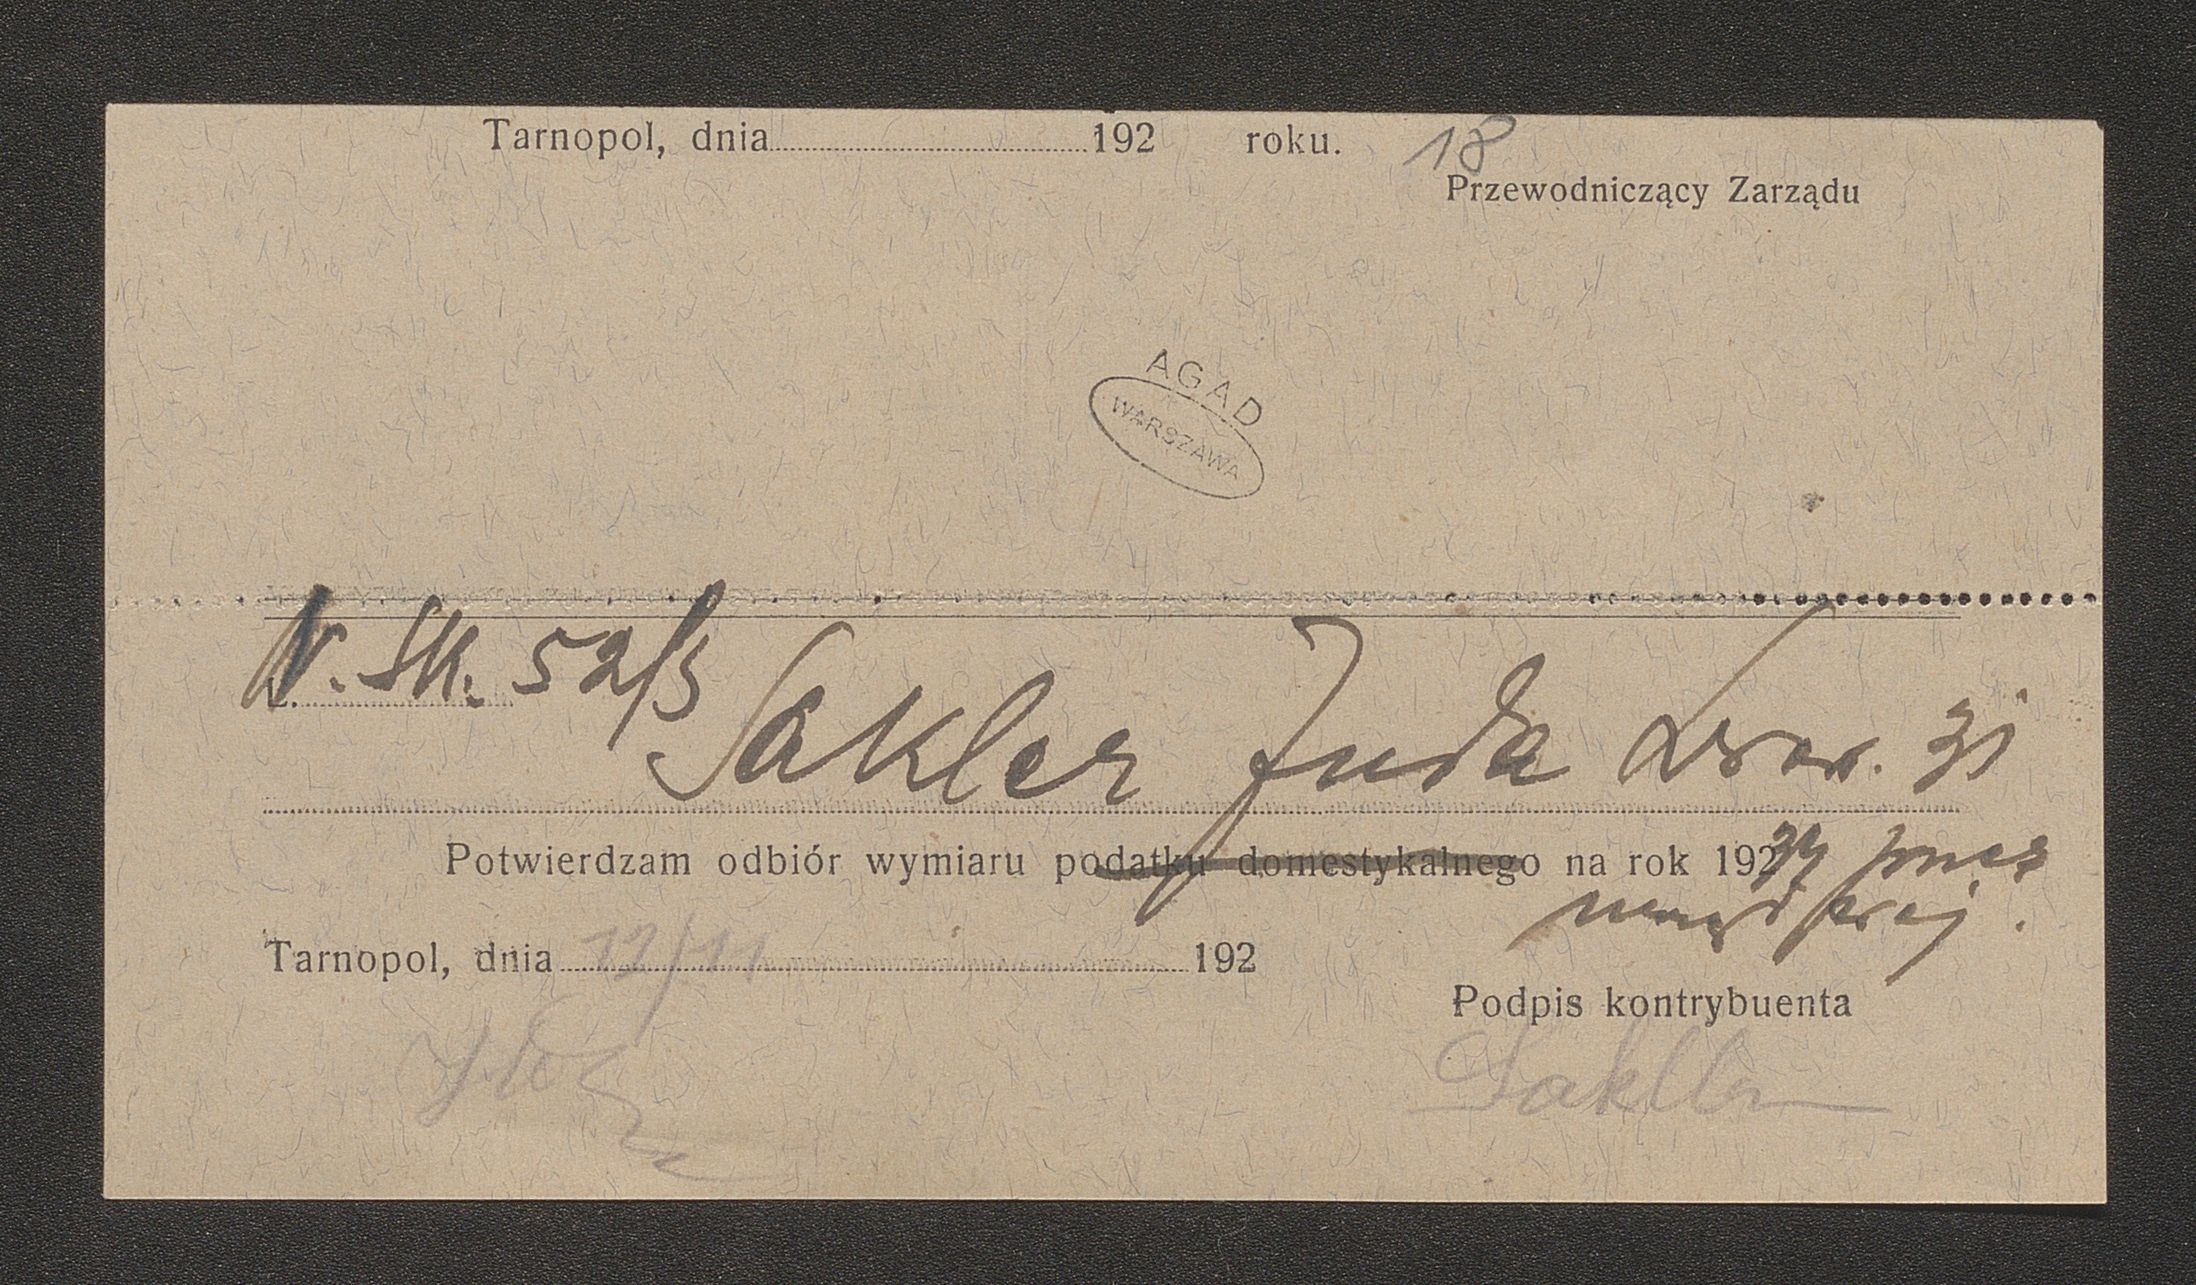 Tarnopol, dnia 192 roku.
18
Przewodniczący Zarządu
AGAD
WARSZAWA
N. Sk. 52/3
L.
Sakler Juda Lwow. 31
Potwierdzam odbiór wymiaru podatku domestykalnego na rok 192
Tarnopol, dnia 12/11 192
Podpis kontrybuenta
Sakller